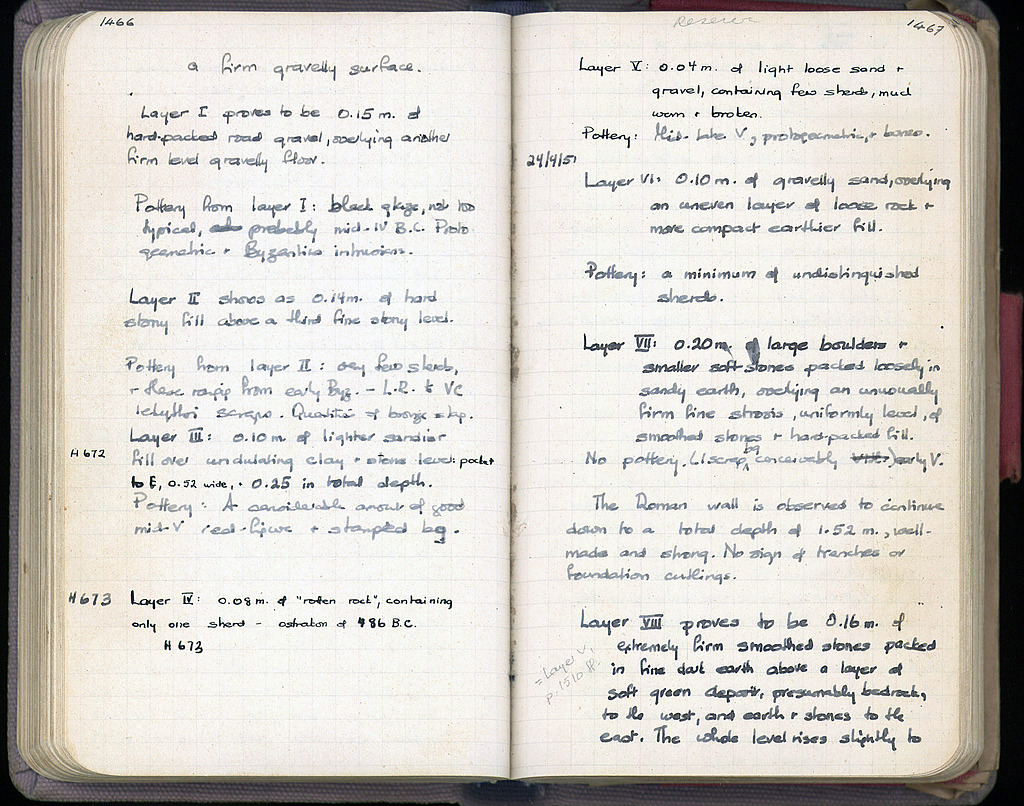 1466
a firm gravelly surface.
Layer I proves to be 0.15 m. of
hard-packed road gravel, overlying another
firm level gravelly floor.
Pottery from layer I: black glaze, not too
typical, probably mid-IV B.C. Proto
geometric + Byzantine intrusions.
Layer II shows as 0.14m. of hard
stony fill above a third fine stony level.
Pottery from layer II: very few sherds,
+ these range from early Byz. – L.R. to VC
lekythoi scraps. Quantities of bronze slag.
Layer III: 0.10 m of lighter sandier
H 672
fill over undulating clay + stone level: pocket
to E, 0.52 wide, + 0.25 in total depth.
Pottery: A considerable amount of good
mid-V red-figure + stamped bg.
H 673
Layer IV: 0.08 m. of "rotten rock", containing
only one sherd – ostrakon of 486 B.C.
H 673
Reserve
1467
Layer V: 0.04 m. of light loose sand +
gravel, containing few sherds, much
worn + broken.
Pottery: Mid-late V, protogeometric, + bones.
24/4/51
Layer VI: 0.10 m. of gravelly sand, overlying
an uneven layer of loose rock +
more compact earthier fill.
Pottery: a minimum of undistinguished
sherds.
Layer VII: 0.20 m. of large boulders +
smaller soft stones packed loosely in
sandy earth, overlying an unusually
firm fine strosis, uniformly level, of
smoothed stones + hard-packed fill.
No pottery. (1 scrap bg conceivably early V.
The Roman wall is observed to continue
down to a total depth of 1.52 m., well-
made and strong. No sign of trenches or
foundation cuttings.
Layer VIII proves to be 0.16 m. of
extremely firm smoothed stones packed
= Layer V,
p. 1510 ff.
in fine dark earth above a layer of
soft green deposit, presumably bedrock,
to the west, and earth + stones to the
east. The whole level rises slightly to